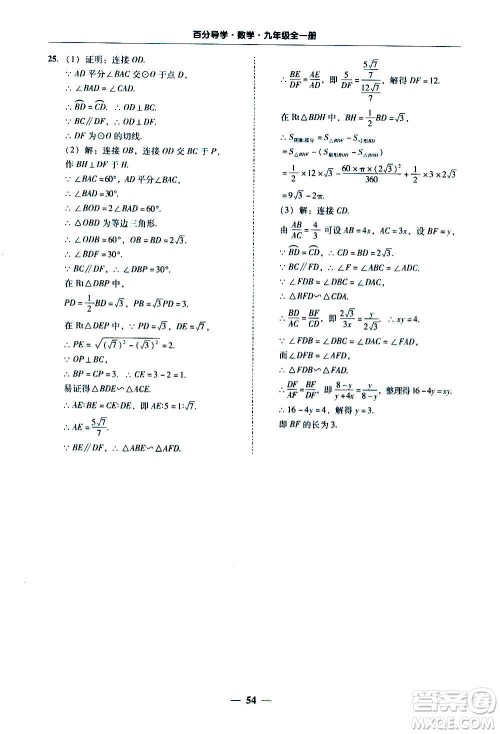 百分导学·数学·九年级全一册
25. (1) 证明：连接 OD.
∵ AD 平分∠BAC 交⊙O 于点 D，
∴ ∠BAD＝∠CAD.
∴ B͡D＝C͡D. ∴ OD⊥BC.
∵ BC∥DF，∴ OD⊥DF.
∴ DF 为⊙O 的切线.
(2) 解：连接 OB，连接 OD 交 BC 于 P，
作 BH⊥DF 于 H.
∵ ∠BAC＝60°，AD 平分∠BAC，
∴ ∠BAD＝30°.
∴ ∠BOD＝2∠BAD＝60°.
∴ △OBD 为等边三角形.
∴ ∠ODB＝60°，OB＝BD＝2√3.
∵ BC∥DF，∴ ∠DBP＝30°.
在 Rt△DBP 中，
PD＝1/2 BD＝√3，PB＝√3 PD＝3.
在 Rt△DEP 中，∵ PD＝√3，DE＝√7，
∴ PE＝√((√7)²－(√3)²)＝2.
∵ OP⊥BC，
∴ BP＝CP＝3. ∴ CE＝3－2＝1.
易证得△BDE∽△ACE.
∴ AE∶BE＝CE∶DE，即 AE∶5＝1∶√7.
∴ AE＝5√7/7
∵ BE∥DF，∴ △ABE∽△AFD.
∴ BE/DF＝AE/AD，即 5/DF＝(5√7/7)/(12√7/7)，解得 DF＝12.
在 Rt△BDH 中，BH＝1/2 BD＝√3，
∴ S阴影部分＝S△BDF－S弓形BD
＝S△BDF－(S扇形BOD－S△BOD)
＝1/2×12×√3－60×π×(2√3)²/360＋√3/4×(2√3)²
＝9√3－2π.
(3) 解：连接 CD.
由 AB/AC＝4/3 可设 AB＝4x，AC＝3x，BF＝y，
∵ B͡D＝C͡D，∴ CD＝BD＝2√3.
∵ DF∥BC，∴ ∠F＝∠ABC＝∠ADC.
∵ ∠FDB＝∠DBC＝∠DAC，
∴ △BFD∽△CDA.
∴ BD/AC＝BF/CD，即 2√3/3x＝y/2√3，∴ xy＝4.
∵ ∠FDB＝∠DBC＝∠DAC＝∠FAD，
而∠DFB＝∠AFD，
∴ △FDB∽△FAD.
∴ DF/AF＝BF/DF，即 (8－y)/(y＋4x)＝y/(8－y)，整理得 16－4y＝xy.
∴ 16－4y＝4，解得 y＝3.
即 BF 的长为 3.
— 54 —
答案圈
MXQE.COM